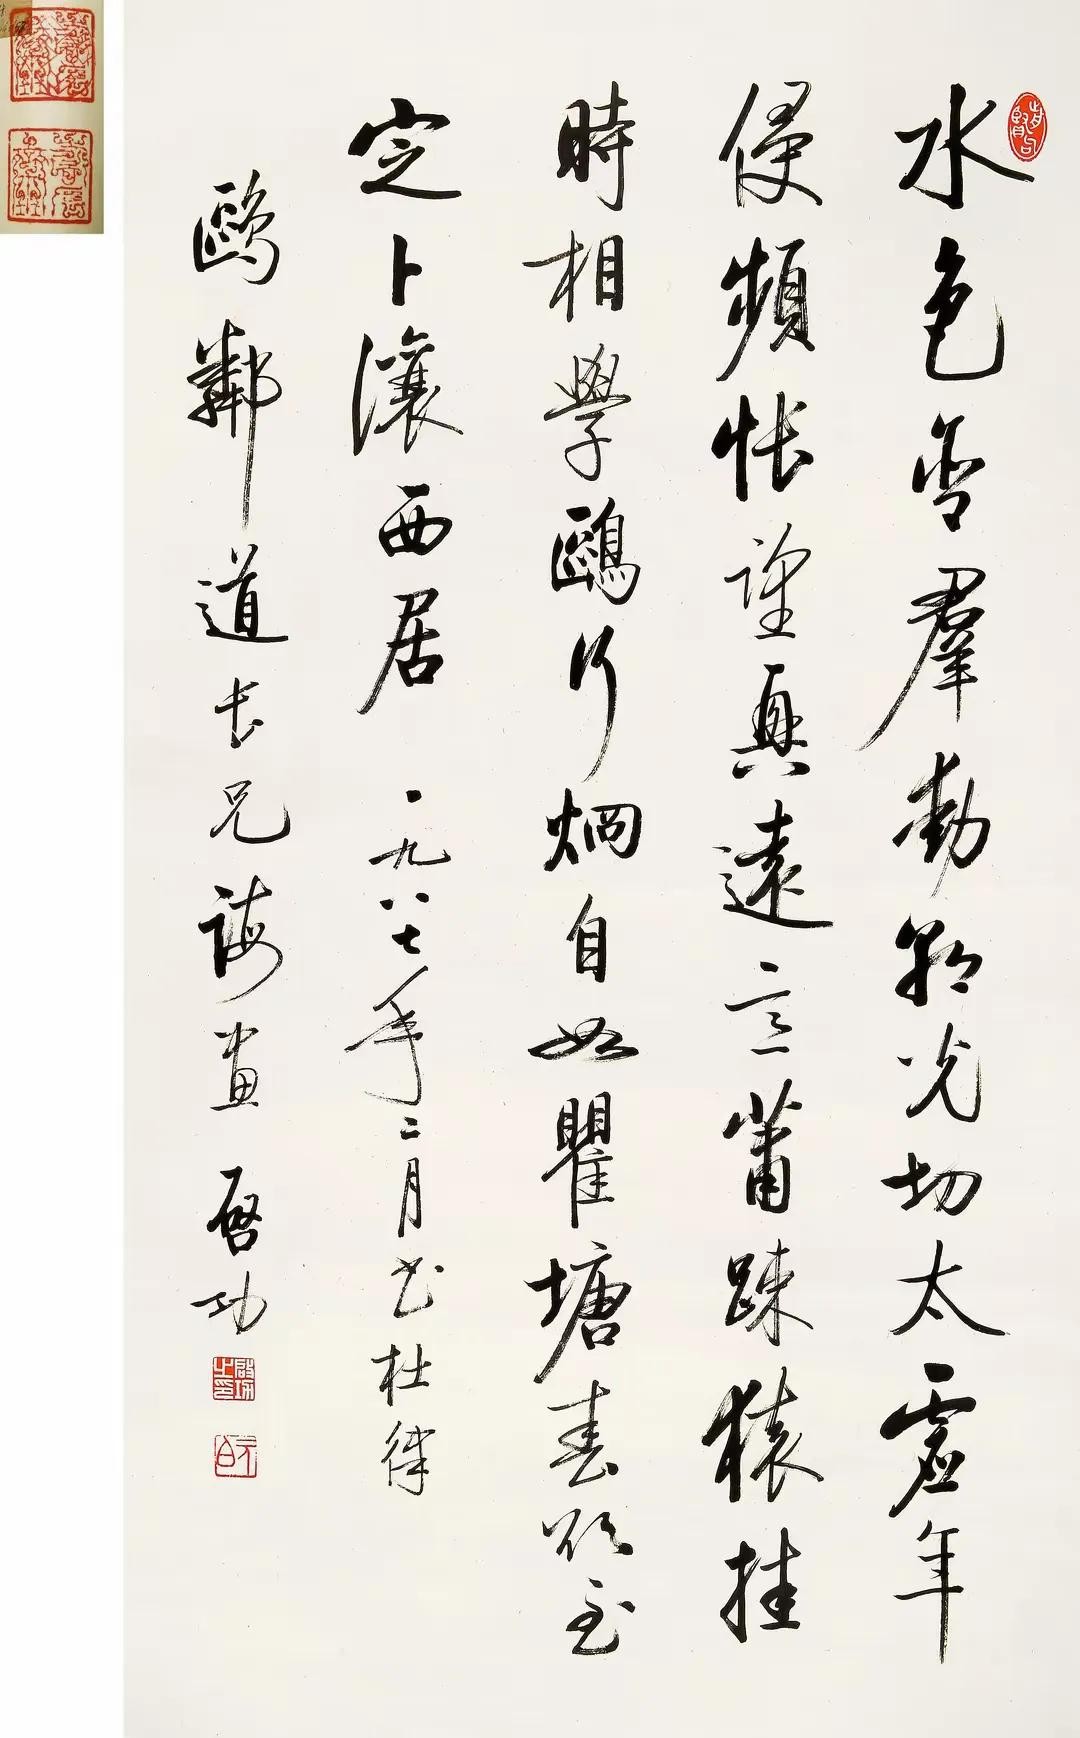 水色含羣動朝光切太虛年
侵頻悵望興遠一蕭踈猿挂
時相學鷗行炯自如瞿塘春欲至
定卜瀼西居 一九八七年二月書杜律
鷗鄰道長兄誨畫 啟功
啟功之印
元白